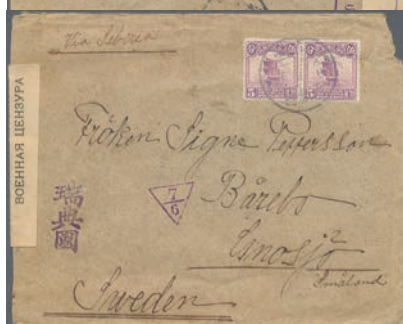 Via Siberia
ВОЕННАЯ ЦЕНЗУРА
Fröken Signe Pettersson
瑞典國
7/6
Bårebo
Gnosjö
Småland
Sweden